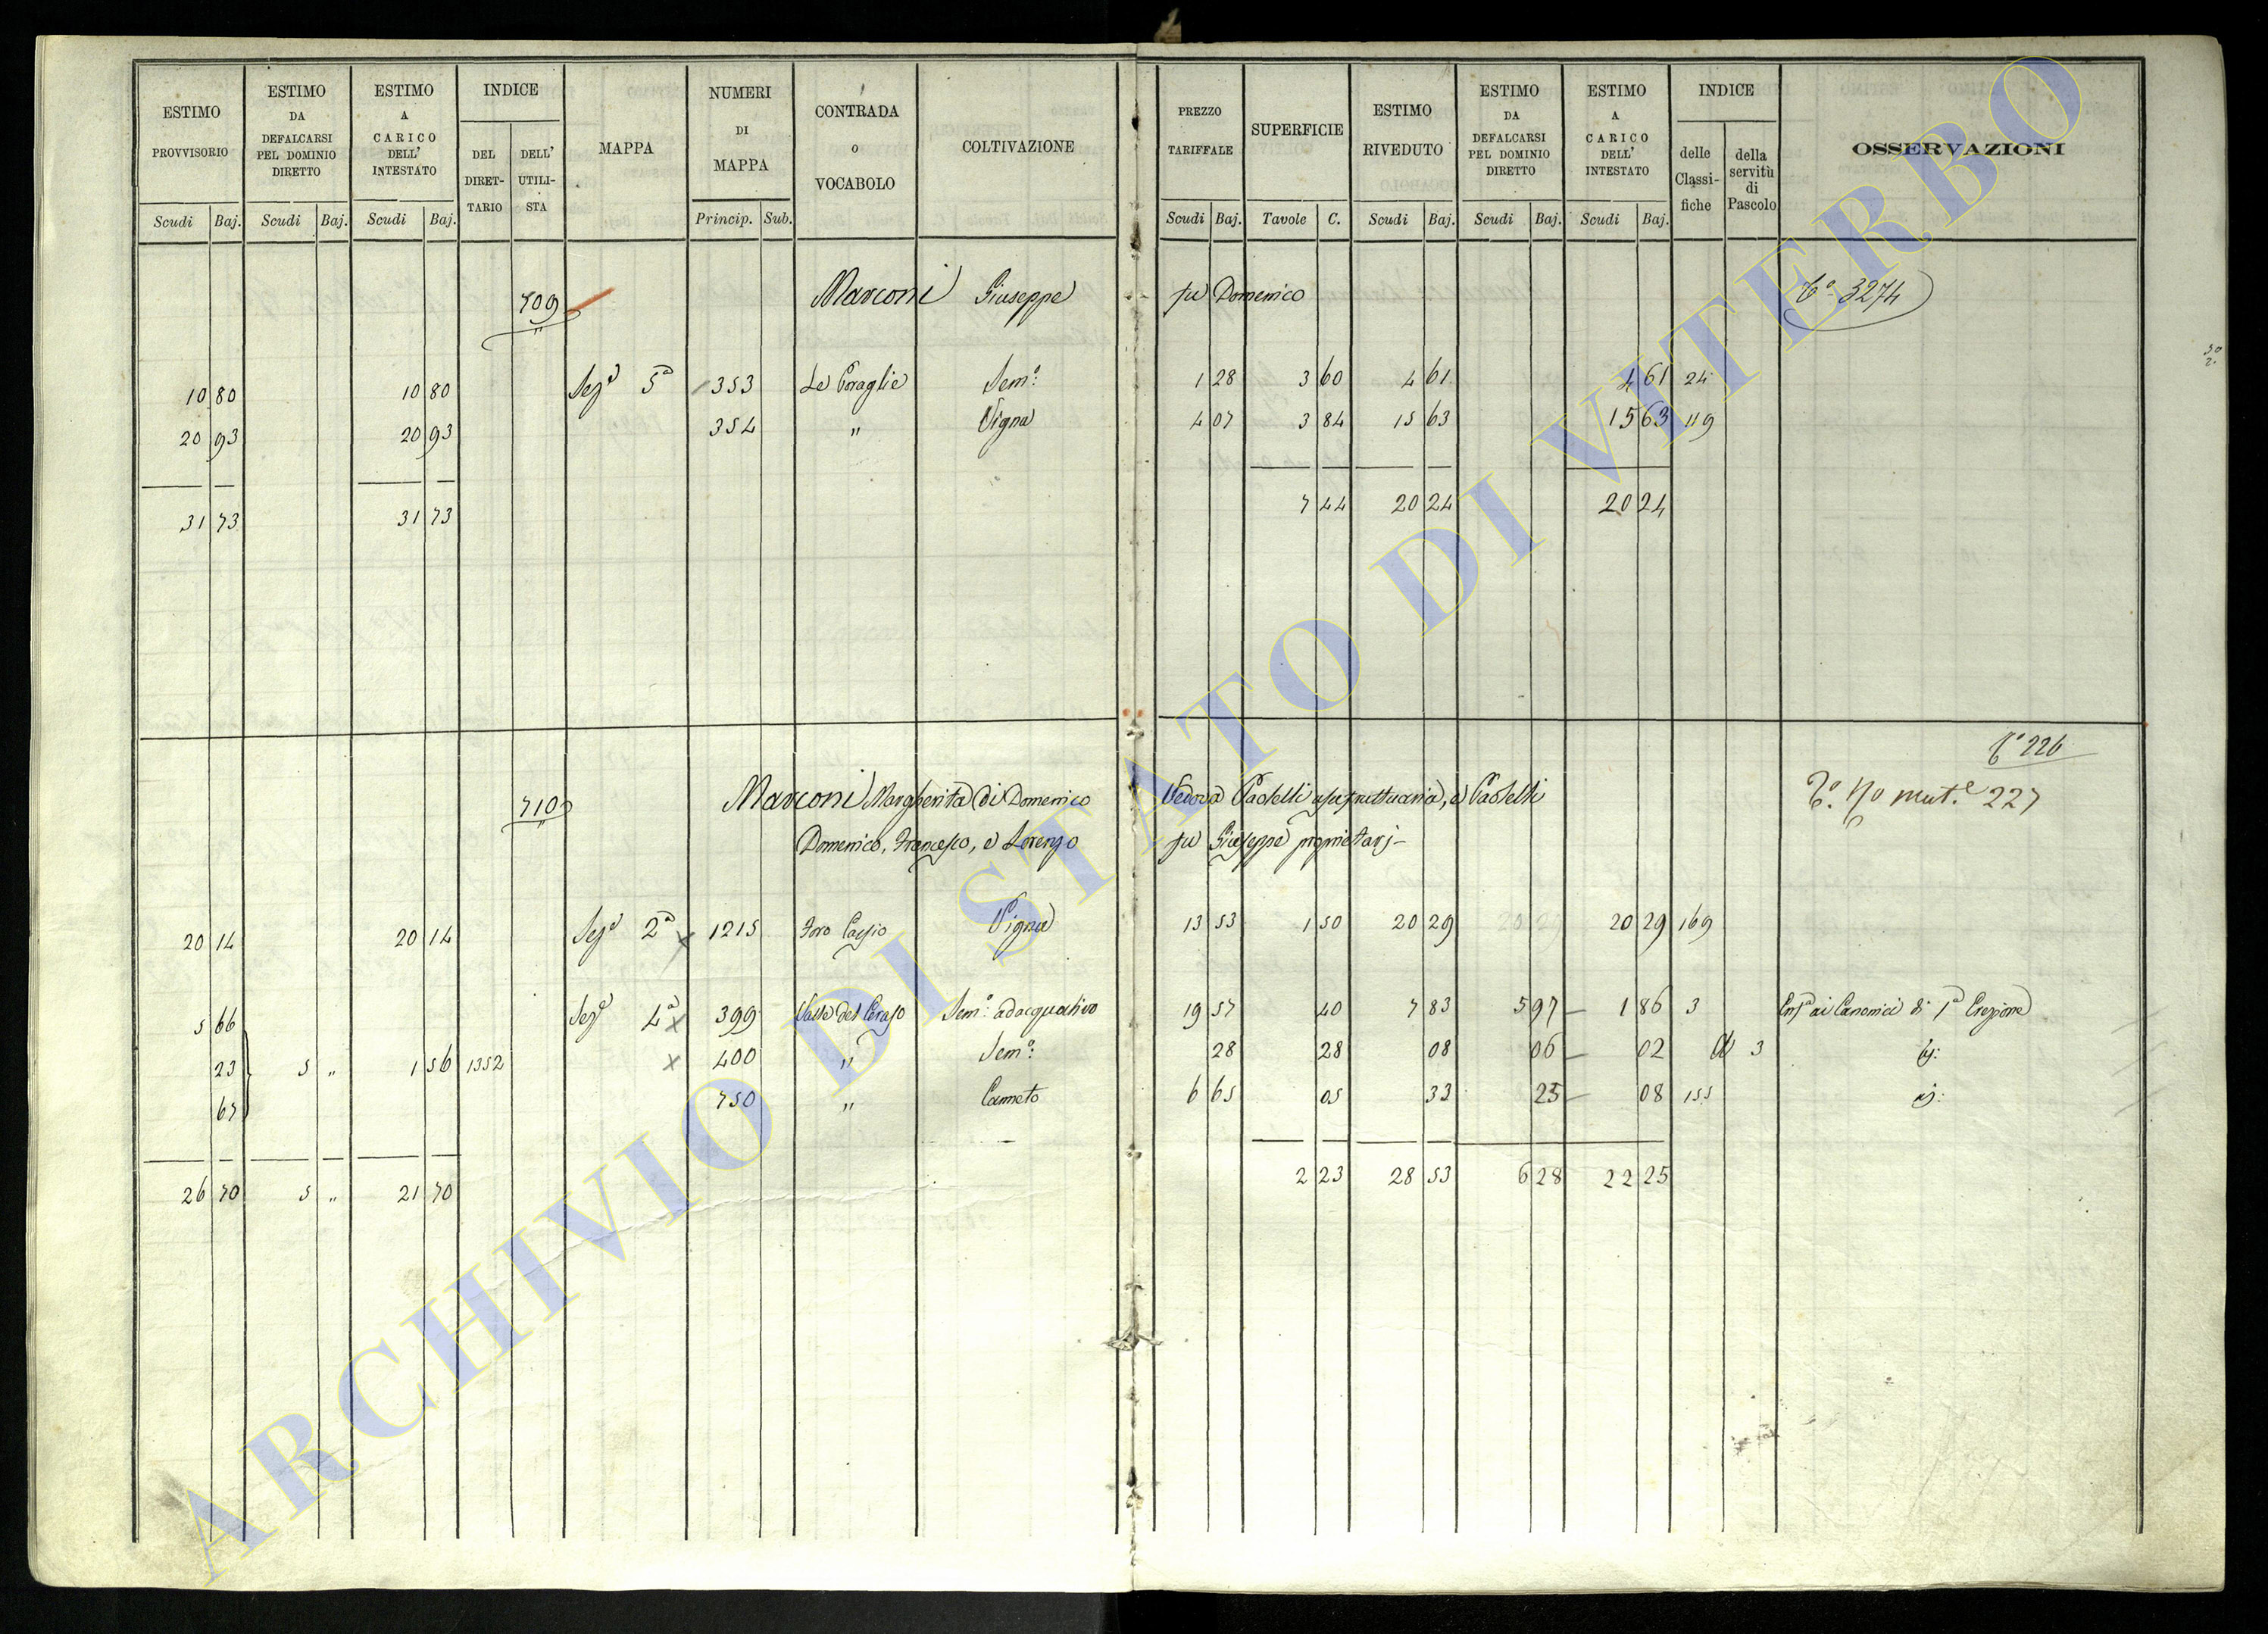 ESTIMO PROVVISORIO Scudi Baj.
ESTIMO DA DEFALCARSI PEL DOMINIO DIRETTO Scudi Baj.
ESTIMO A CARICO DELL' INTESTATO Scudi Baj.
INDICE DEL DIRET-TARIO DELL' UTILI-STA
MAPPA
NUMERI DI MAPPA Princip. Sub.
CONTRADA O VOCABOLO
COLTIVAZIONE
PREZZO TARIFFALE Scudi Baj.
SUPERFICIE Tavole C.
ESTIMO RIVEDUTO Scudi Baj.
ESTIMO DA DEFALCARSI PEL DOMINIO DIRETTO Scudi Baj.
ESTIMO A CARICO DELL' INTESTATO Scudi Baj.
INDICE delle Classi-fiche della servitù di Pascolo
OSSERVAZIONI
709 Marconi Giuseppe fu Domenico 3274
10 80 10 80 Sez.e 5a 353 Sem.o 1 28 3 60 4 61 4 61 24
20 93 20 93 354 " Vigna 4 07 3 84 15 63 15 63 119
31 73 31 73 7 44 20 24 20 24
226
710 Marconi Margherita di Domenico Vedova Pastelli usufruttuaria, e Pastelli mut.e 227
Domenico, Francesco, e Lorenzo fu Giuseppe proprietarj
20 14 20 14 Sez.e 2a 1215 Foro Cassio Vigna 13 53 1 50 20 29 20 29 169
5 66 Sez.e 4a 399 Valle del Ceraso Sem.o adacquativo 19 57 40 7 83 5 97 1 86 3 Enf.a ai Canonici di 1a Erezione
23 5 " 1 56 1352 400 " Sem.o 28 28 08 06 02 3
67 750 " Canneto 6 65 05 33 25 08 155
26 70 5 " 21 70 2 23 28 53 6 28 22 25
ARCHIVIO DI STATO DI VITERBO